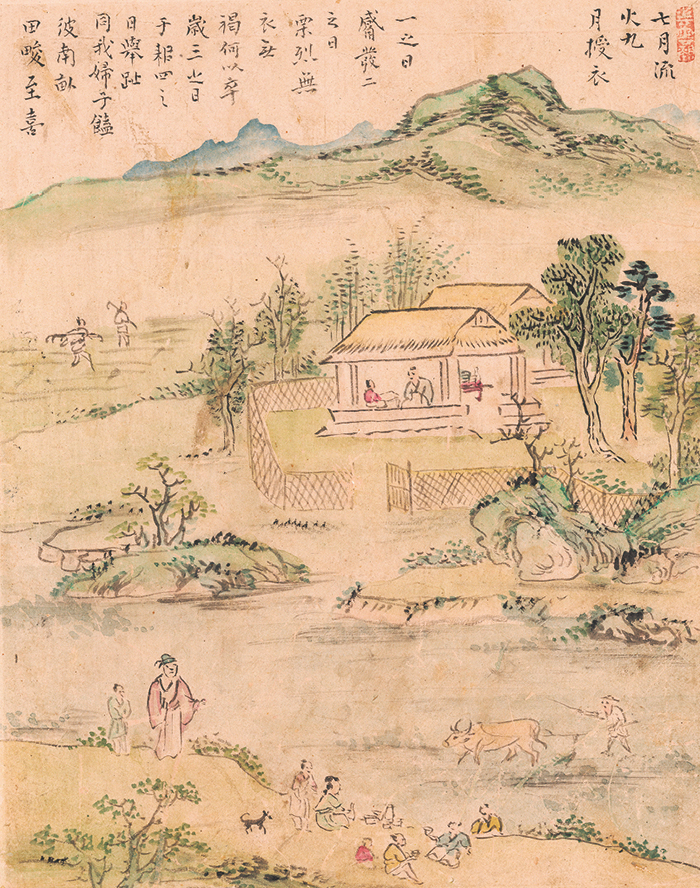 七月流
火九
月授衣
一之日
觱發二
之日
栗烈無
衣无
褐何以卒
歲三之日
于耜四之
日舉趾
同我婦子饁
彼南畝
田畯至喜